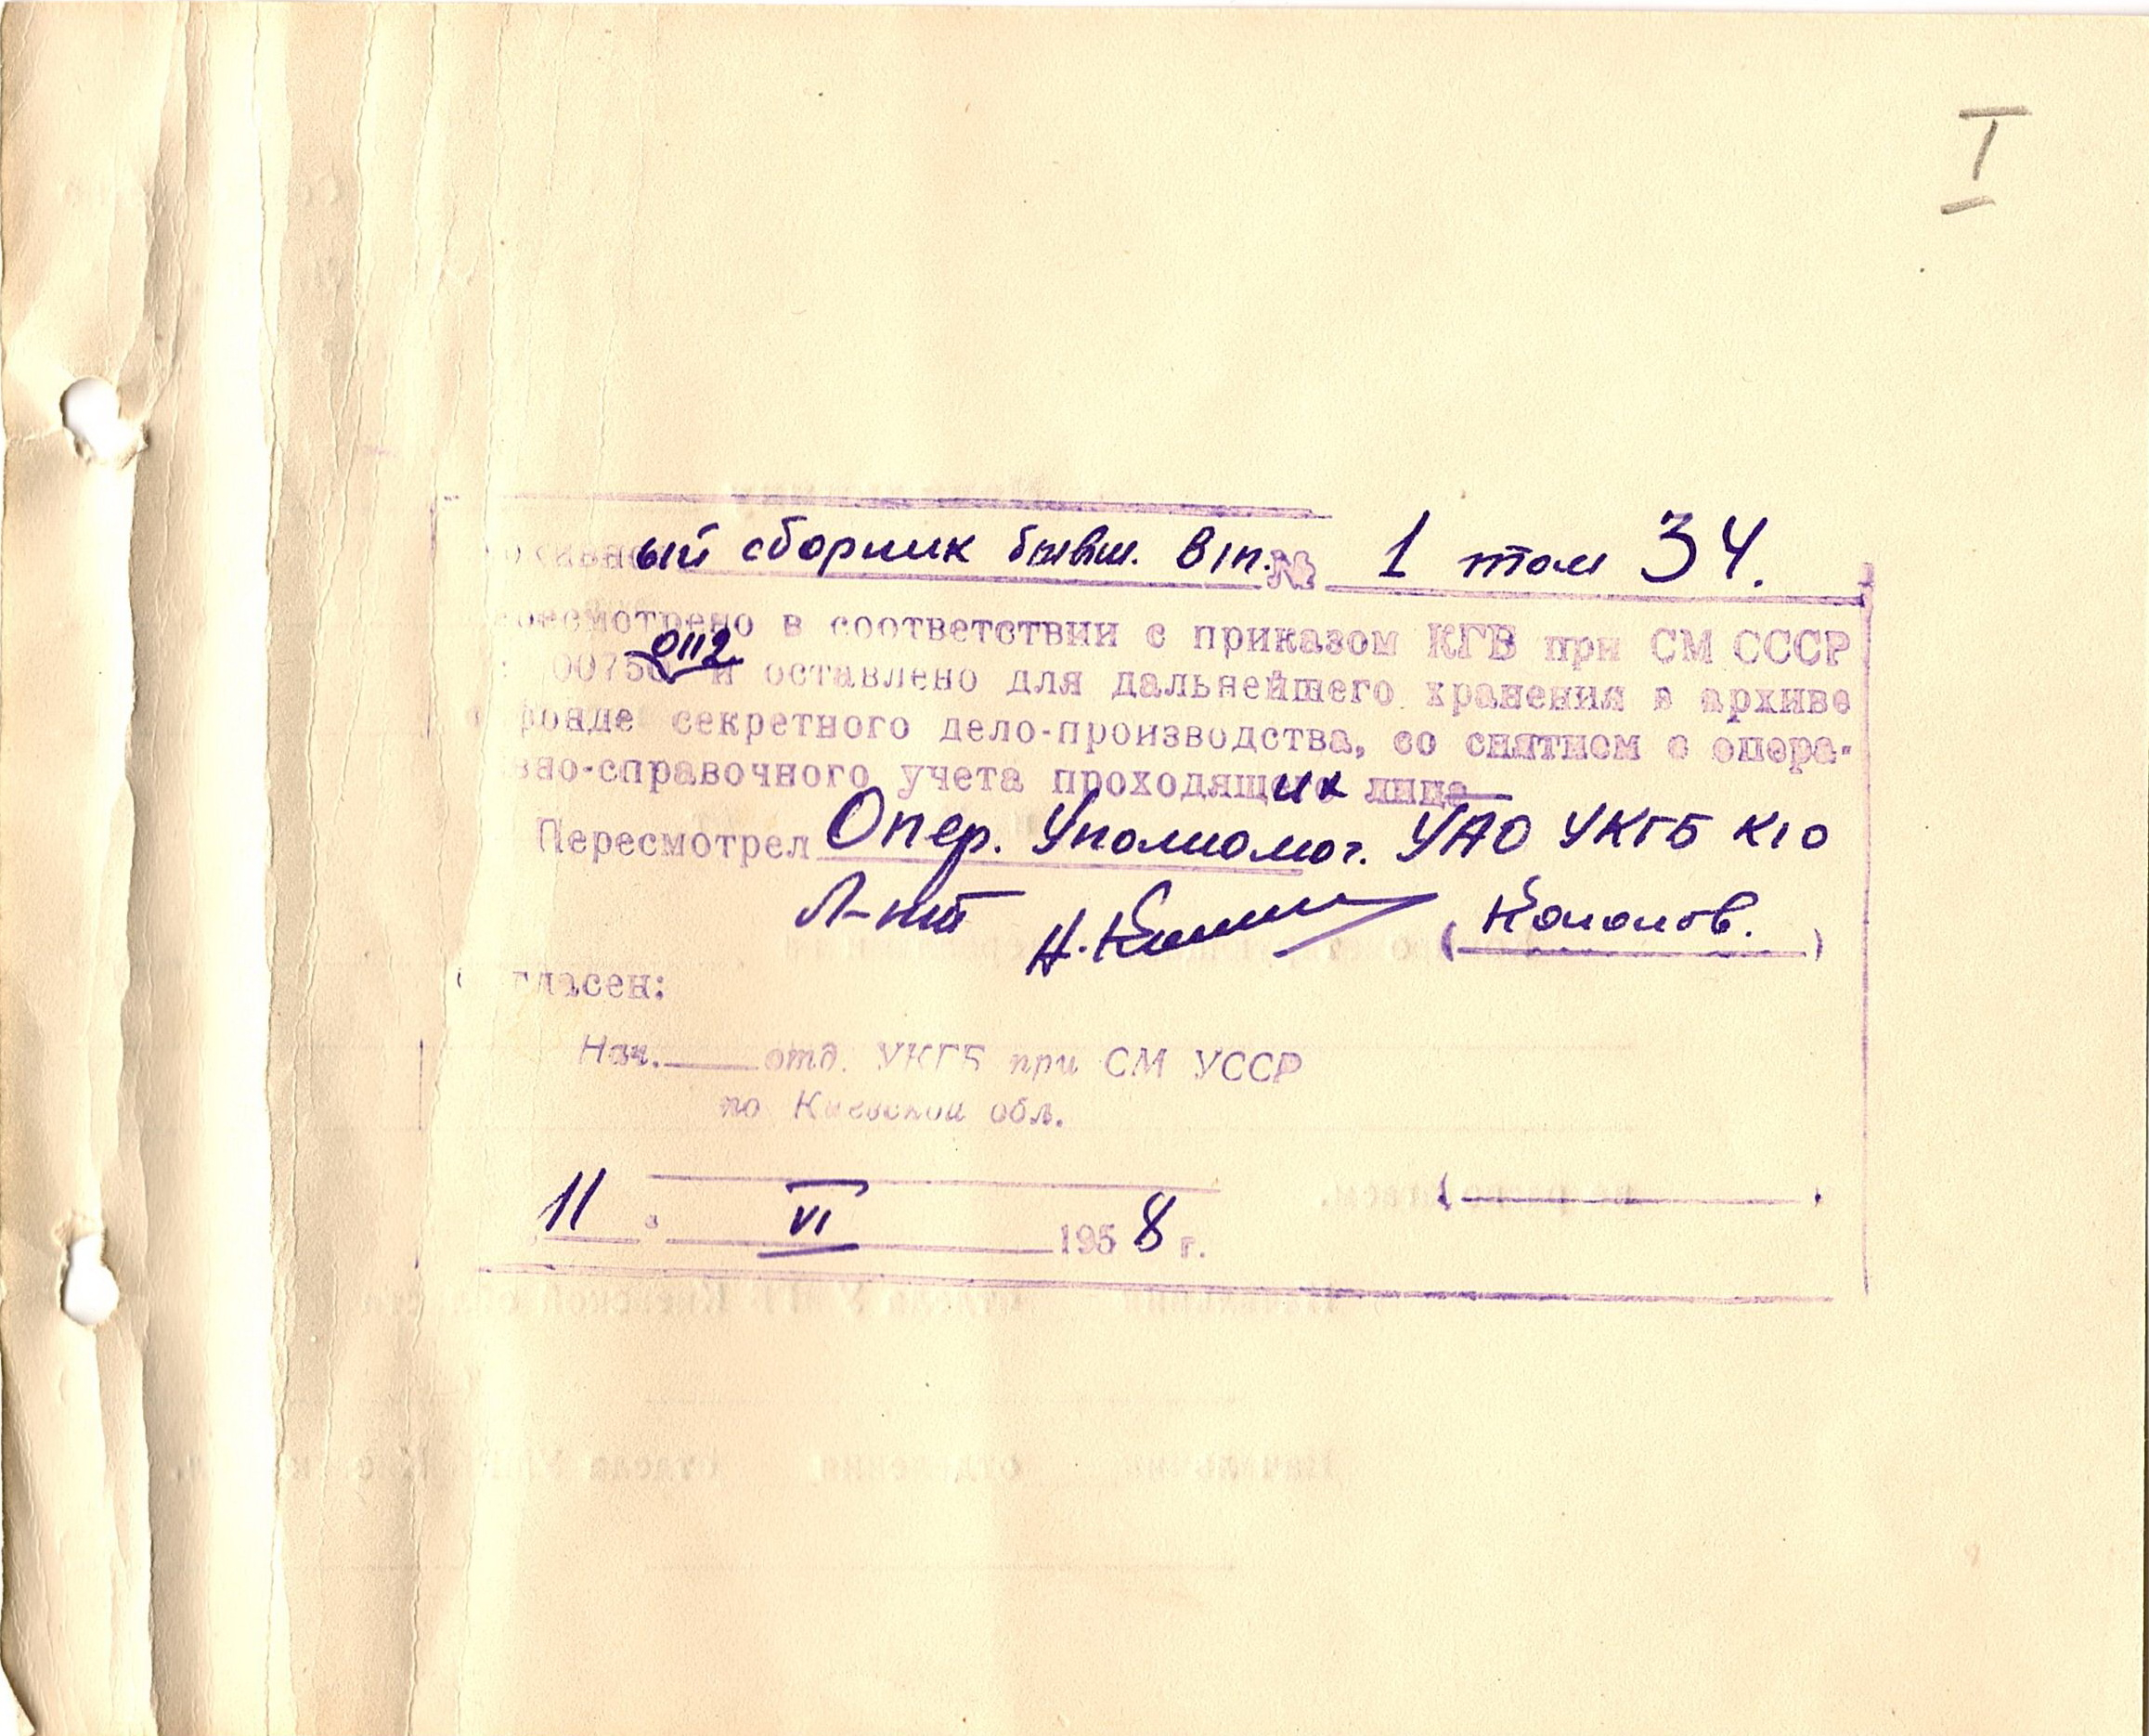 I
ый сборник бывш. В/п. № 1 том 34.
смотрено в соответствии с приказом КГБ при СМ СССР
0112
00750 и оставлено для дальнейшего хранения в архиве
фонде секретного дело-производства, со снятием с опера-
вно-справочного учета проходящих лица
Пересмотрел Опер. Уполномог. УАО УКГБ К/О
Л-нт Н. (Кононов.)
гласен:
Нач. отд. УКГБ при СМ УССР
по Киевской обл.
11 " VI 1958 г.